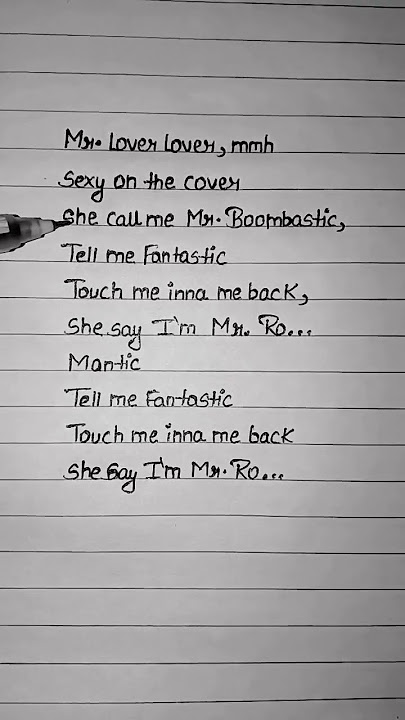 Mr. Lover Lover, mmh
Sexy on the cover
She call me Mr. Boombastic,
Tell me Fantastic
Touch me inna me back,
She say I'm Mr. Ro...
Mantic
Tell me Fantastic
Touch me inna me back
She say I'm Mr. Ro...